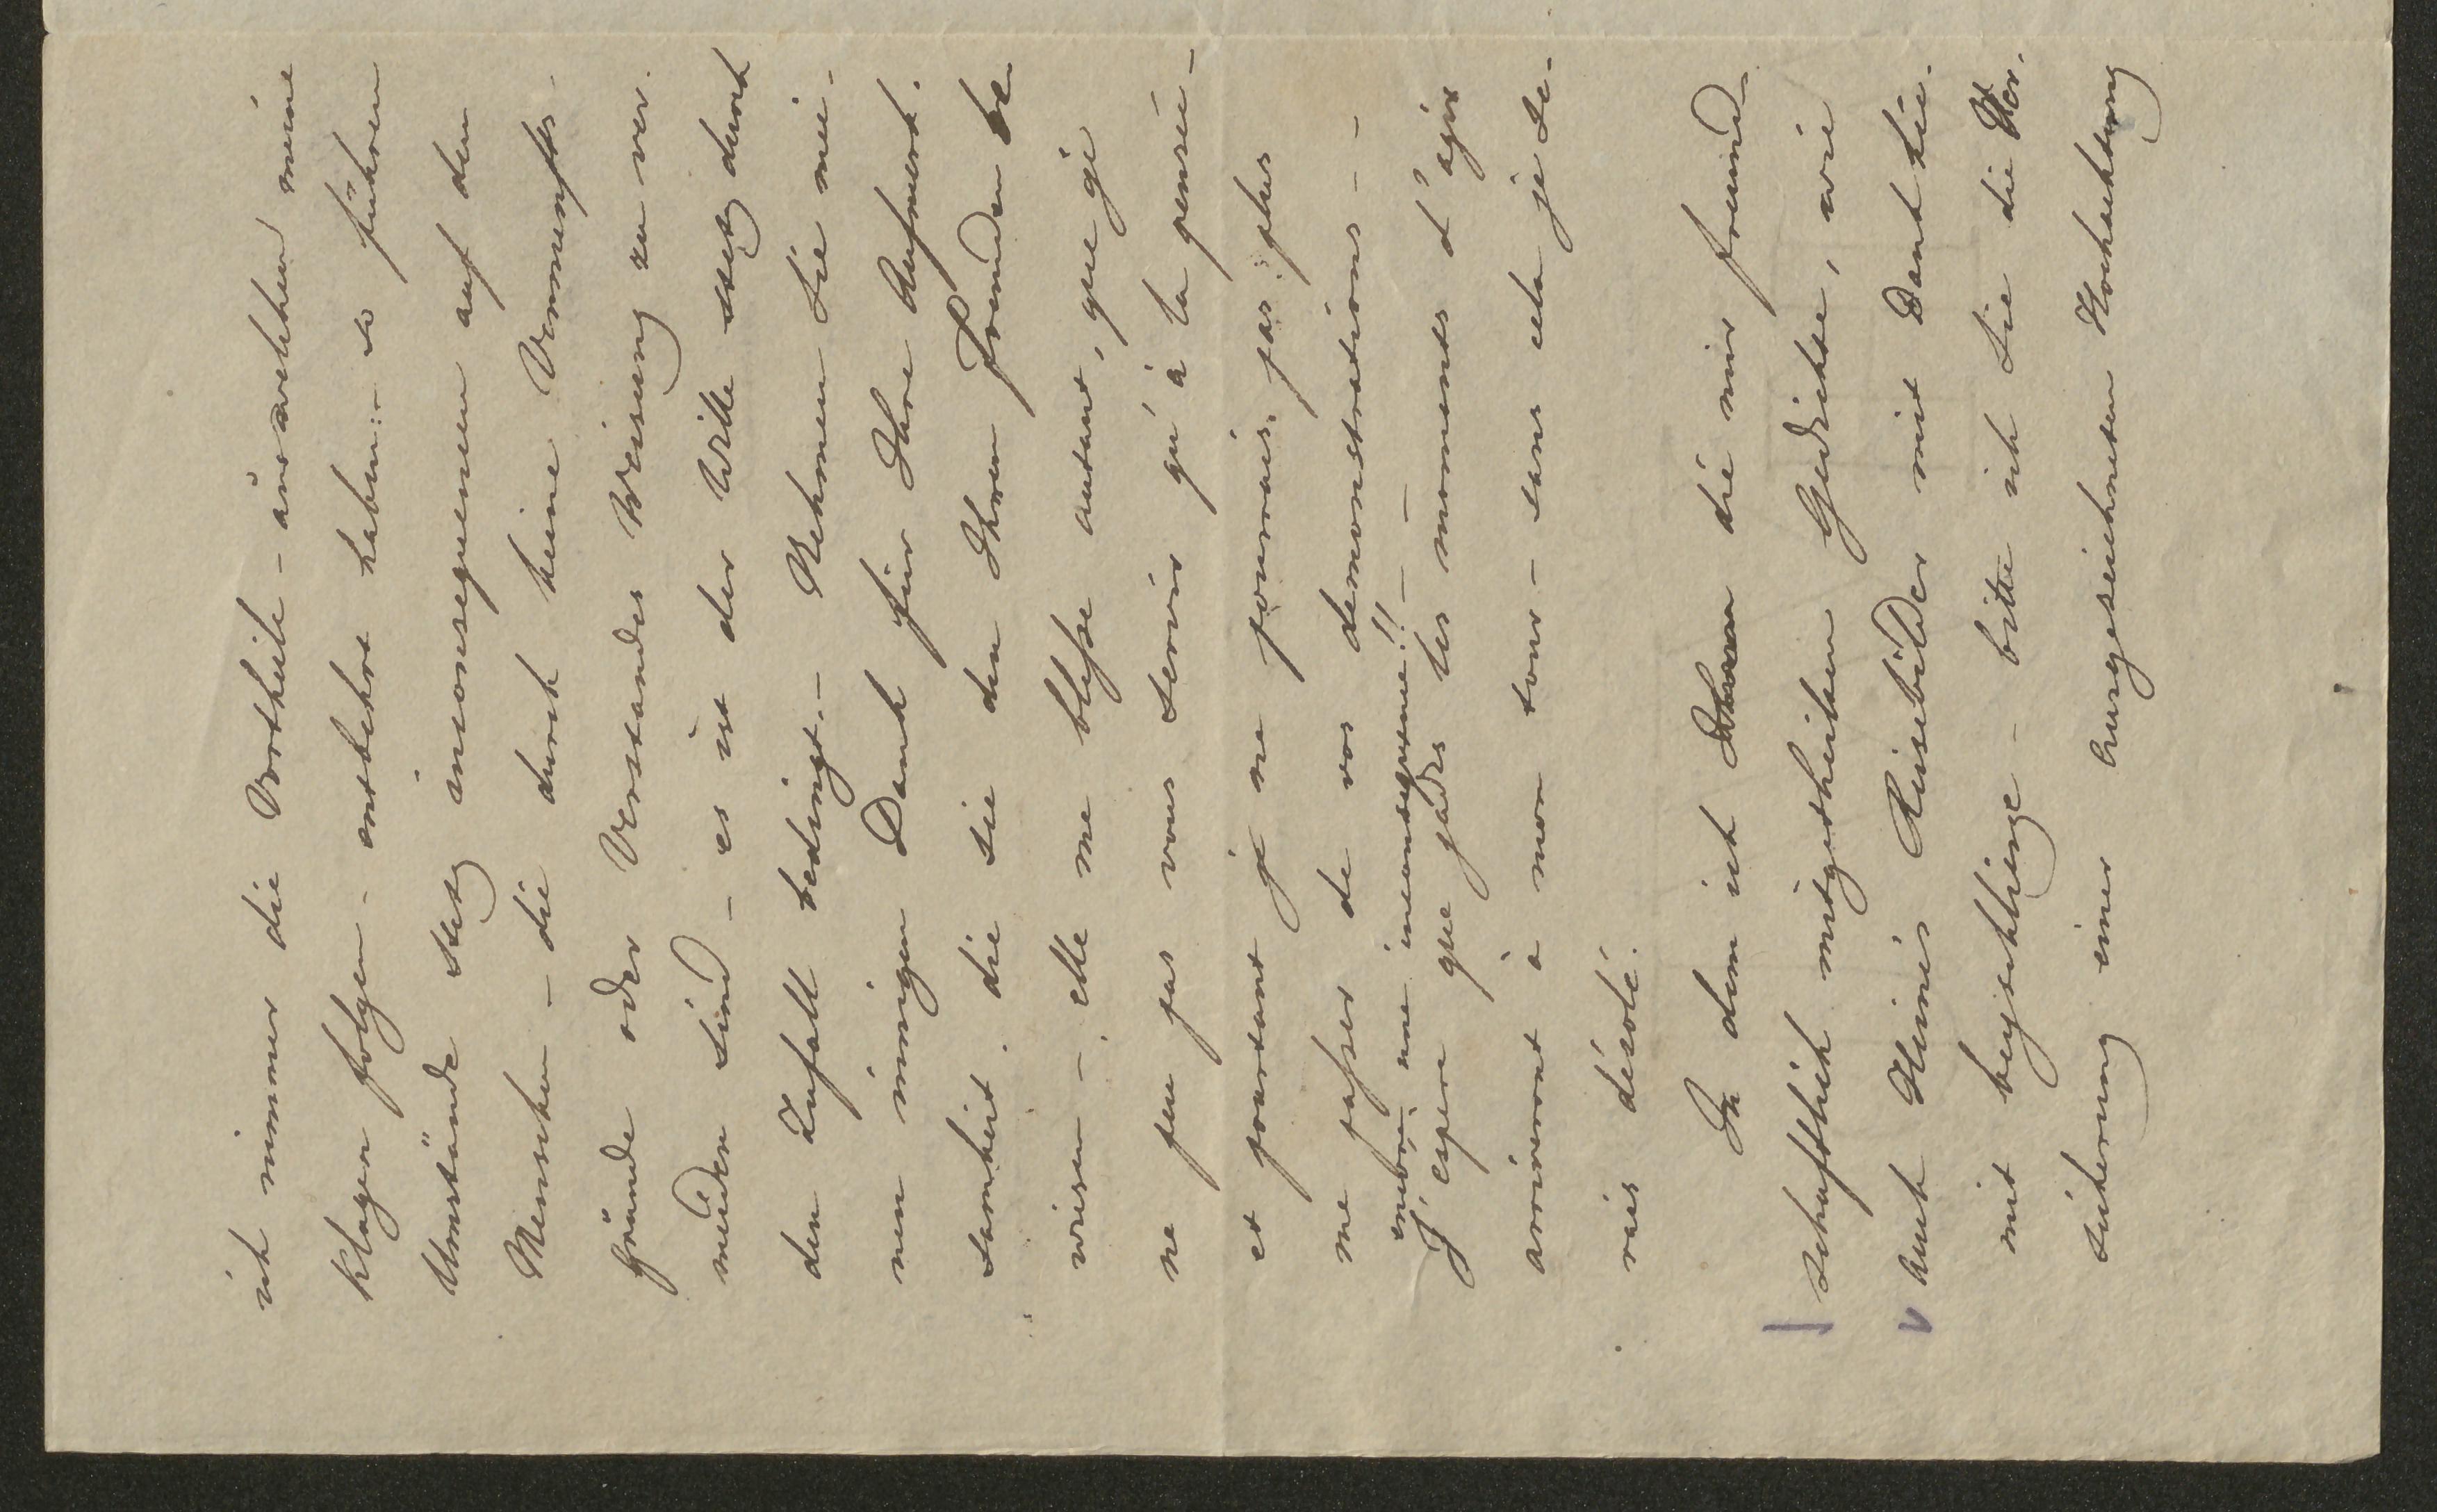 ich immer die Vortheile - aus welchen meine
Klagen folgen - entbehrt haben :- so führen
Umstände stets inconsequenzen auf den
Menschen - die durch keine Vernunfts-
gründe oder Verstandes Weisung zu ver-
meiden sind - es ist der Wille stets durch
den Zufall bedingt. - Nehmen Sie mei-
nen innigen Dank für Ihre Aufmerk-
samkeit, die sie den Ihren Freunden be-
weisen - elle me blesse autant, que je
ne peu pas vous servir qu'à la pensée -
et pourtant je ne pourrais, pas plus
me passer de vos demonstrations - -
encore une inconsequence!! - - -
J'espere que jadis les moments d'agir
arriveront à mon tour - sans cela je se-
rais désolé.
In dem ich Ihnen die mir freund-
schaftlich mitgetheilten Gedichte, wie
auch Heines Reisebilder mit Dank hie-
mit beyschlinge - bitte ich Sie die Ver-
sicherung einer ausgezeichneten Hochachtung